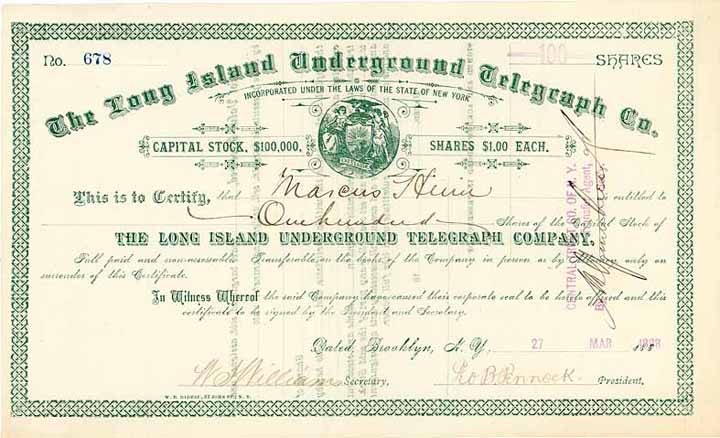 No. 678
100 SHARES
The Long Island Underground Telegraph Co.
INCORPORATED UNDER THE LAWS OF THE STATE OF NEW YORK
CAPITAL STOCK, $100,000. SHARES $1.00 EACH.
This is to Certify, that Marcus entitled to
One hundred Shares of the Capital Stock of
THE LONG ISLAND UNDERGROUND TELEGRAPH COMPANY.
Full paid and nonassessable. Transferable on the books of the Company in person or by only on
surrender of this Certificate.
In Witness Whereof the said Company have caused their corporate seal to be hereto affixed and this
certificate to be signed by the President and Secretary.
Dated, Brooklyn, N. Y. 27 MAR 1888 188
W Williams Secretary, Pennock. President.
CENTRAL CO. OF N. Y.
Transfer Agent,